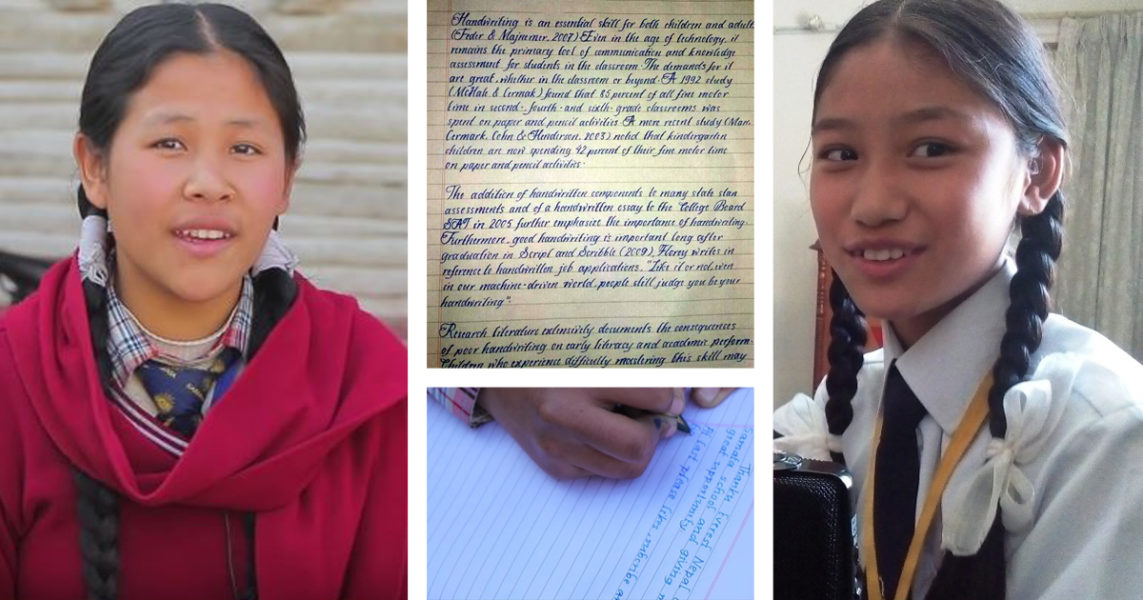 Handwriting is an essential skill for both children and adult
(Feder & Majnemer, 2007) Even in the age of technology, it
remains the primary tool of communication and knowledge
assessment for students in the classroom. The demands for it
are great, whether in the classroom or beyond. A 1992 study
(McHale & Cermak) found that 85 percent of all fine motor
time in second-, fourth- and sixth- grade classrooms was
spent on paper and pencil activities. A more recent study (Marr,
Cermark, Cohn & Henderson, 2003) noted that kindergarten
children are now spending 42 percent of their fine motor time
on paper and pencil activities.
The addition of handwritten components to many state stan
assessments and of a handwritten essay to the College Board
SAT in 2005 further emphasize the importance of handwriting.
Furthermore, good handwriting is important long after
graduation in Script and Scribble (2009), Florey writes in
reference to handwritten job applications, "Like it or not, even
in our machine-driven world, people still judge you be your
handwriting".
Research literature extensively documents the consequences
of poor handwriting on early literacy and academic perform-
Children who experience difficulty mastering this skill may
Thanku Everest Nepal
Samata school and giving m
great opportunity
At last please like, subscribe a